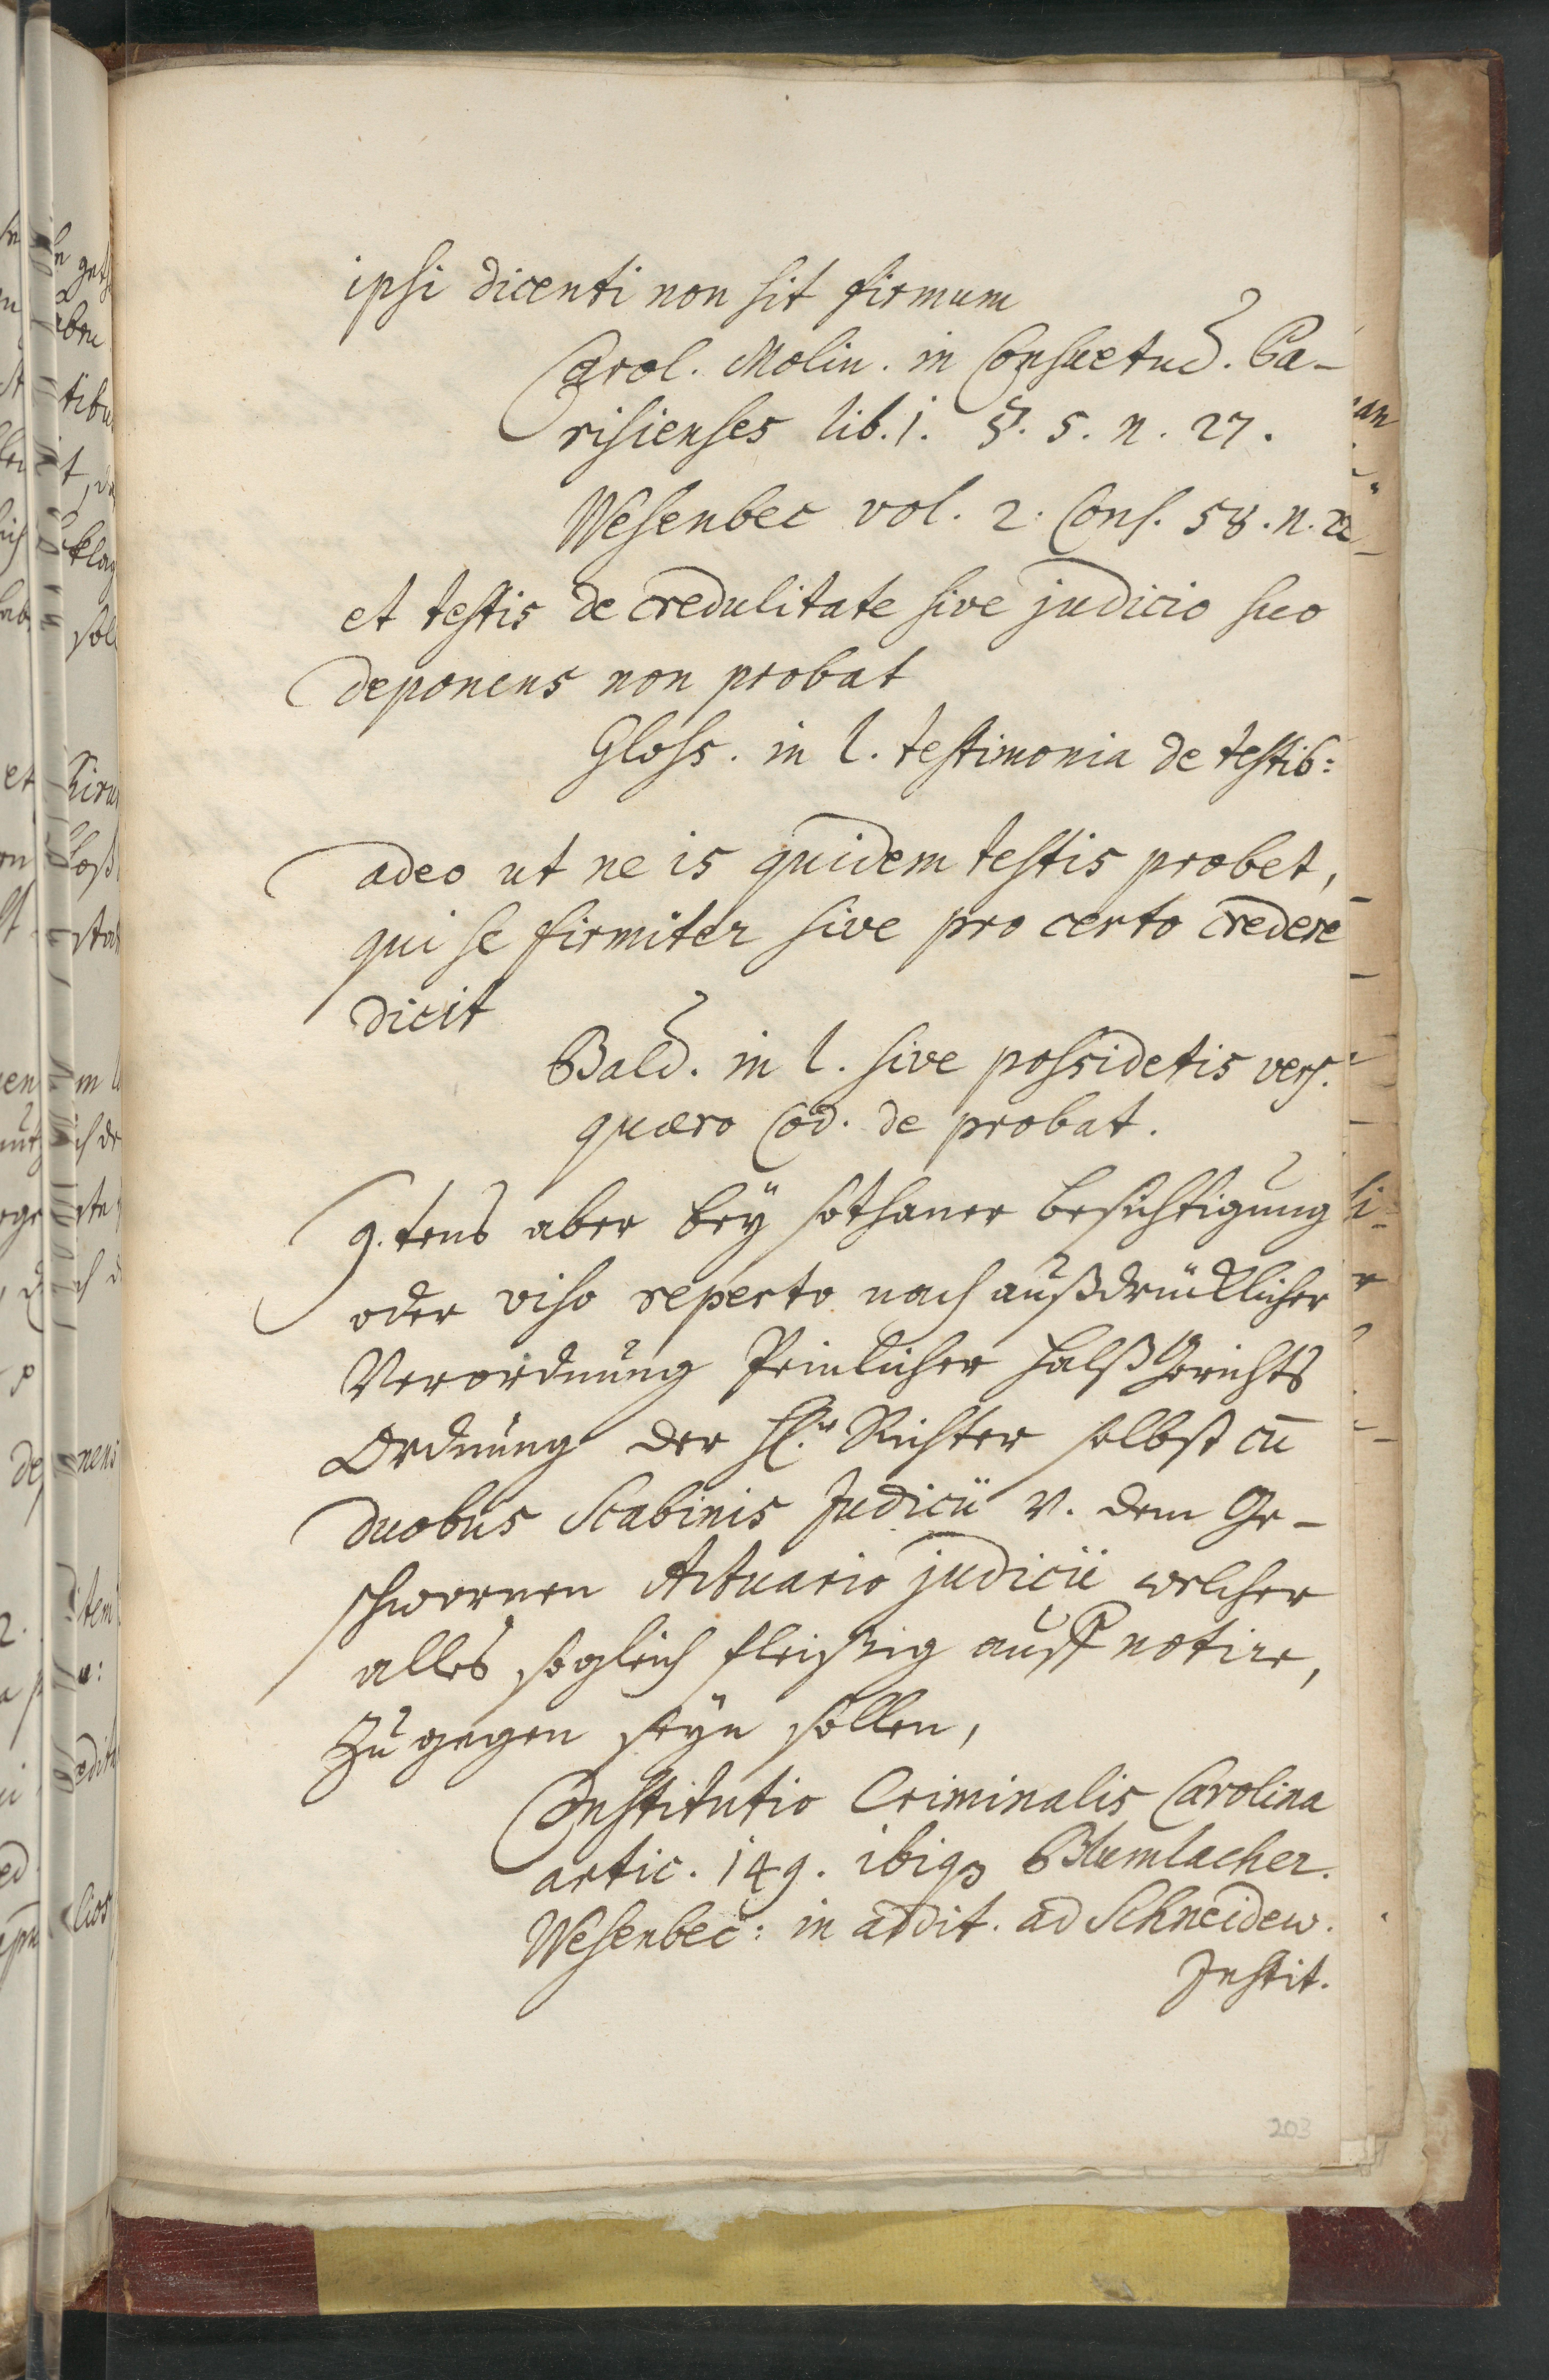 ipsi dicenti non sit firmum
Carol. Molin. in Consuetud. Pa-
risienses lib. 1. §. 5. n. 27.
Wesenbec vol. 2. Cons. 58. n.
et testis de credulitate sive judicio suo
deponens non probat
Gloss. in l. testimonia de testib:
adeo ut ne is quidem testis probet,
qui se firmiter sive pro certo credere
dicit
Bald. in l. sive possidetis vers.
quæro Cod. de probat.
9.tens aber bey sothaner besichtigung
oder viso reperto nach außdrücklicher
Verordnung Peinlicher Halß Gerichts
Ordnung der H. Richter selbst cū
duobus Scabinis Judicii v. dem Ge-
schwornen Actuario judicii welcher
alles sogleich fleißig auff notire,
Zu gegen seyn sollen,
Constitutio Criminalis Carolina
artic. 149. ibiqz Blumlacher.
Wesenbec: in addit. ad Schneidew.
Instit.
203